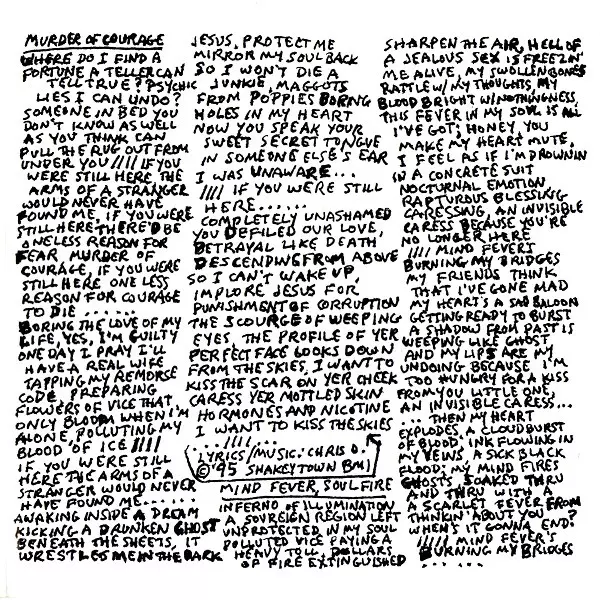 MURDER OF COURAGE
WHERE DO I FIND A
FORTUNE A TELLER CAN
TELL TRUE? PSYCHIC
LIES I CAN UNDO?
SOMEONE IN BED YOU
DON'T KNOW AS WELL
AS YOU THINK CAN
PULL THE RUG OUT FROM
UNDER YOU //// IF YOU
WERE STILL HERE THE
ARMS OF A STRANGER
WOULD NEVER HAVE
FOUND ME, IF YOU WERE
STILL HERE THERE'D BE
ONE LESS REASON FOR
FEAR MURDER OF
COURAGE, IF YOU WERE
STILL HERE ONE LESS
REASON FOR COURAGE
TO DIE ......
BORING THE LOVE OF MY
LIFE, YES, I'M GUILTY
ONE DAY I PRAY I'LL
HAVE A REAL WIFE
TAPPING MY REMORSE
CODE, PREPARING
FLOWERS OF VICE THAT
ONLY BLOOM WHEN I'M
ALONE, POLLUTING MY
BLOOD OF ICE ////
IF YOU WERE STILL
HERE THE ARMS OF A
STRANGER WOULD NEVER
HAVE FOUND ME......
AWAKING INSIDE A DREAM
KICKING A DRUNKEN GHOST
BENEATH THE SHEETS, IT
WRESTLES ME IN THE DARK
JESUS, PROTECT ME
MIRROR MY SOUL BACK
SO I WON'T DIE A
JUNKIE, MAGGOTS
FROM POPPIES BORING
HOLES IN MY HEART
NOW YOU SPEAK YOUR
SWEET SECRET TONGUE
IN SOMEONE ELSE'S EAR
I WAS UNAWARE...
//// IF YOU WERE STILL
HERE......
COMPLETELY UNASHAMED
YOU DEFILED OUR LOVE,
BETRAYAL LIKE DEATH
DESCENDING FROM ABOVE
SO I CAN'T WAKE UP,
IMPLORE JESUS FOR
PUNISHMENT OF CORRUPTION
THE SCOURGE OF WEEPING
EYES, THE PROFILE OF YER
PERFECT FACE LOOKS DOWN
FROM THE SKIES, I WANT TO
KISS THE SCAR ON YER CHEEK
CARESS YER MOTTLED SKIN
HORMONES AND NICOTINE
I WANT TO KISS THE SKIES
...////...
LYRICS/MUSIC: CHRIS D.
© '95 SHAKEYTOWN BMI
MIND FEVER, SOUL FIRE
INFERNO OF ILLUMINATION
A SOVREIGN REGION LEFT
UNPROTECTED IN MY SOUL
POLLUTED VICE PAYING A
HEAVY TOLL, DOLLARS
OF FIRE EXTINGUISHED
SHARPEN THE AIR, HELL OF
A JEALOUS SEX IS FREEZIN'
ME ALIVE, MY SWOLLEN BONES
RATTLE W/ MY THOUGHTS, MY
BLOOD BRIGHT W/ NOTHINGNESS,
THIS FEVER IN MY SOUL IS ALL
I'VE GOT; HONEY, YOU
MAKE MY HEART MUTE,
I FEEL AS IF I'M DROWNIN
IN A CONCRETE SUIT
NOCTURNAL EMOTION
RAPTUROUS BLESSING
CARESSING, AN INVISIBLE
CARESS BECAUSE YOU'RE
NO LONGER HERE
//// MIND FEVER'S
BURNING MY BRIDGES
MY FRIENDS THINK
THAT I'VE GONE MAD
MY HEART'S A SAD BALOON
GETTING READY TO BURST
A SHADOW FROM PAST IS
WEEPING LIKE GHOST
AND MY LIPS ARE MY
UNDOING BECAUSE I'M
TOO HUNGRY FOR A KISS
FROM YOU LITTLE ONE,
AN INVISIBLE CARESS...
... THEN MY HEART
EXPLODES A CLOUDBURST
OF BLOOD, INK FLOWING IN
MY VEINS A SICK BLACK
FLOOD; MY MIND FIRES
GHOSTS SOAKED THRU
AND THRU WITH A
A SCARLET FEVER FROM
THINKIN' ABOUT YOU
WHEN'S IT GONNA END?
///// MIND FEVER'S
BURNING MY BRIDGES
......